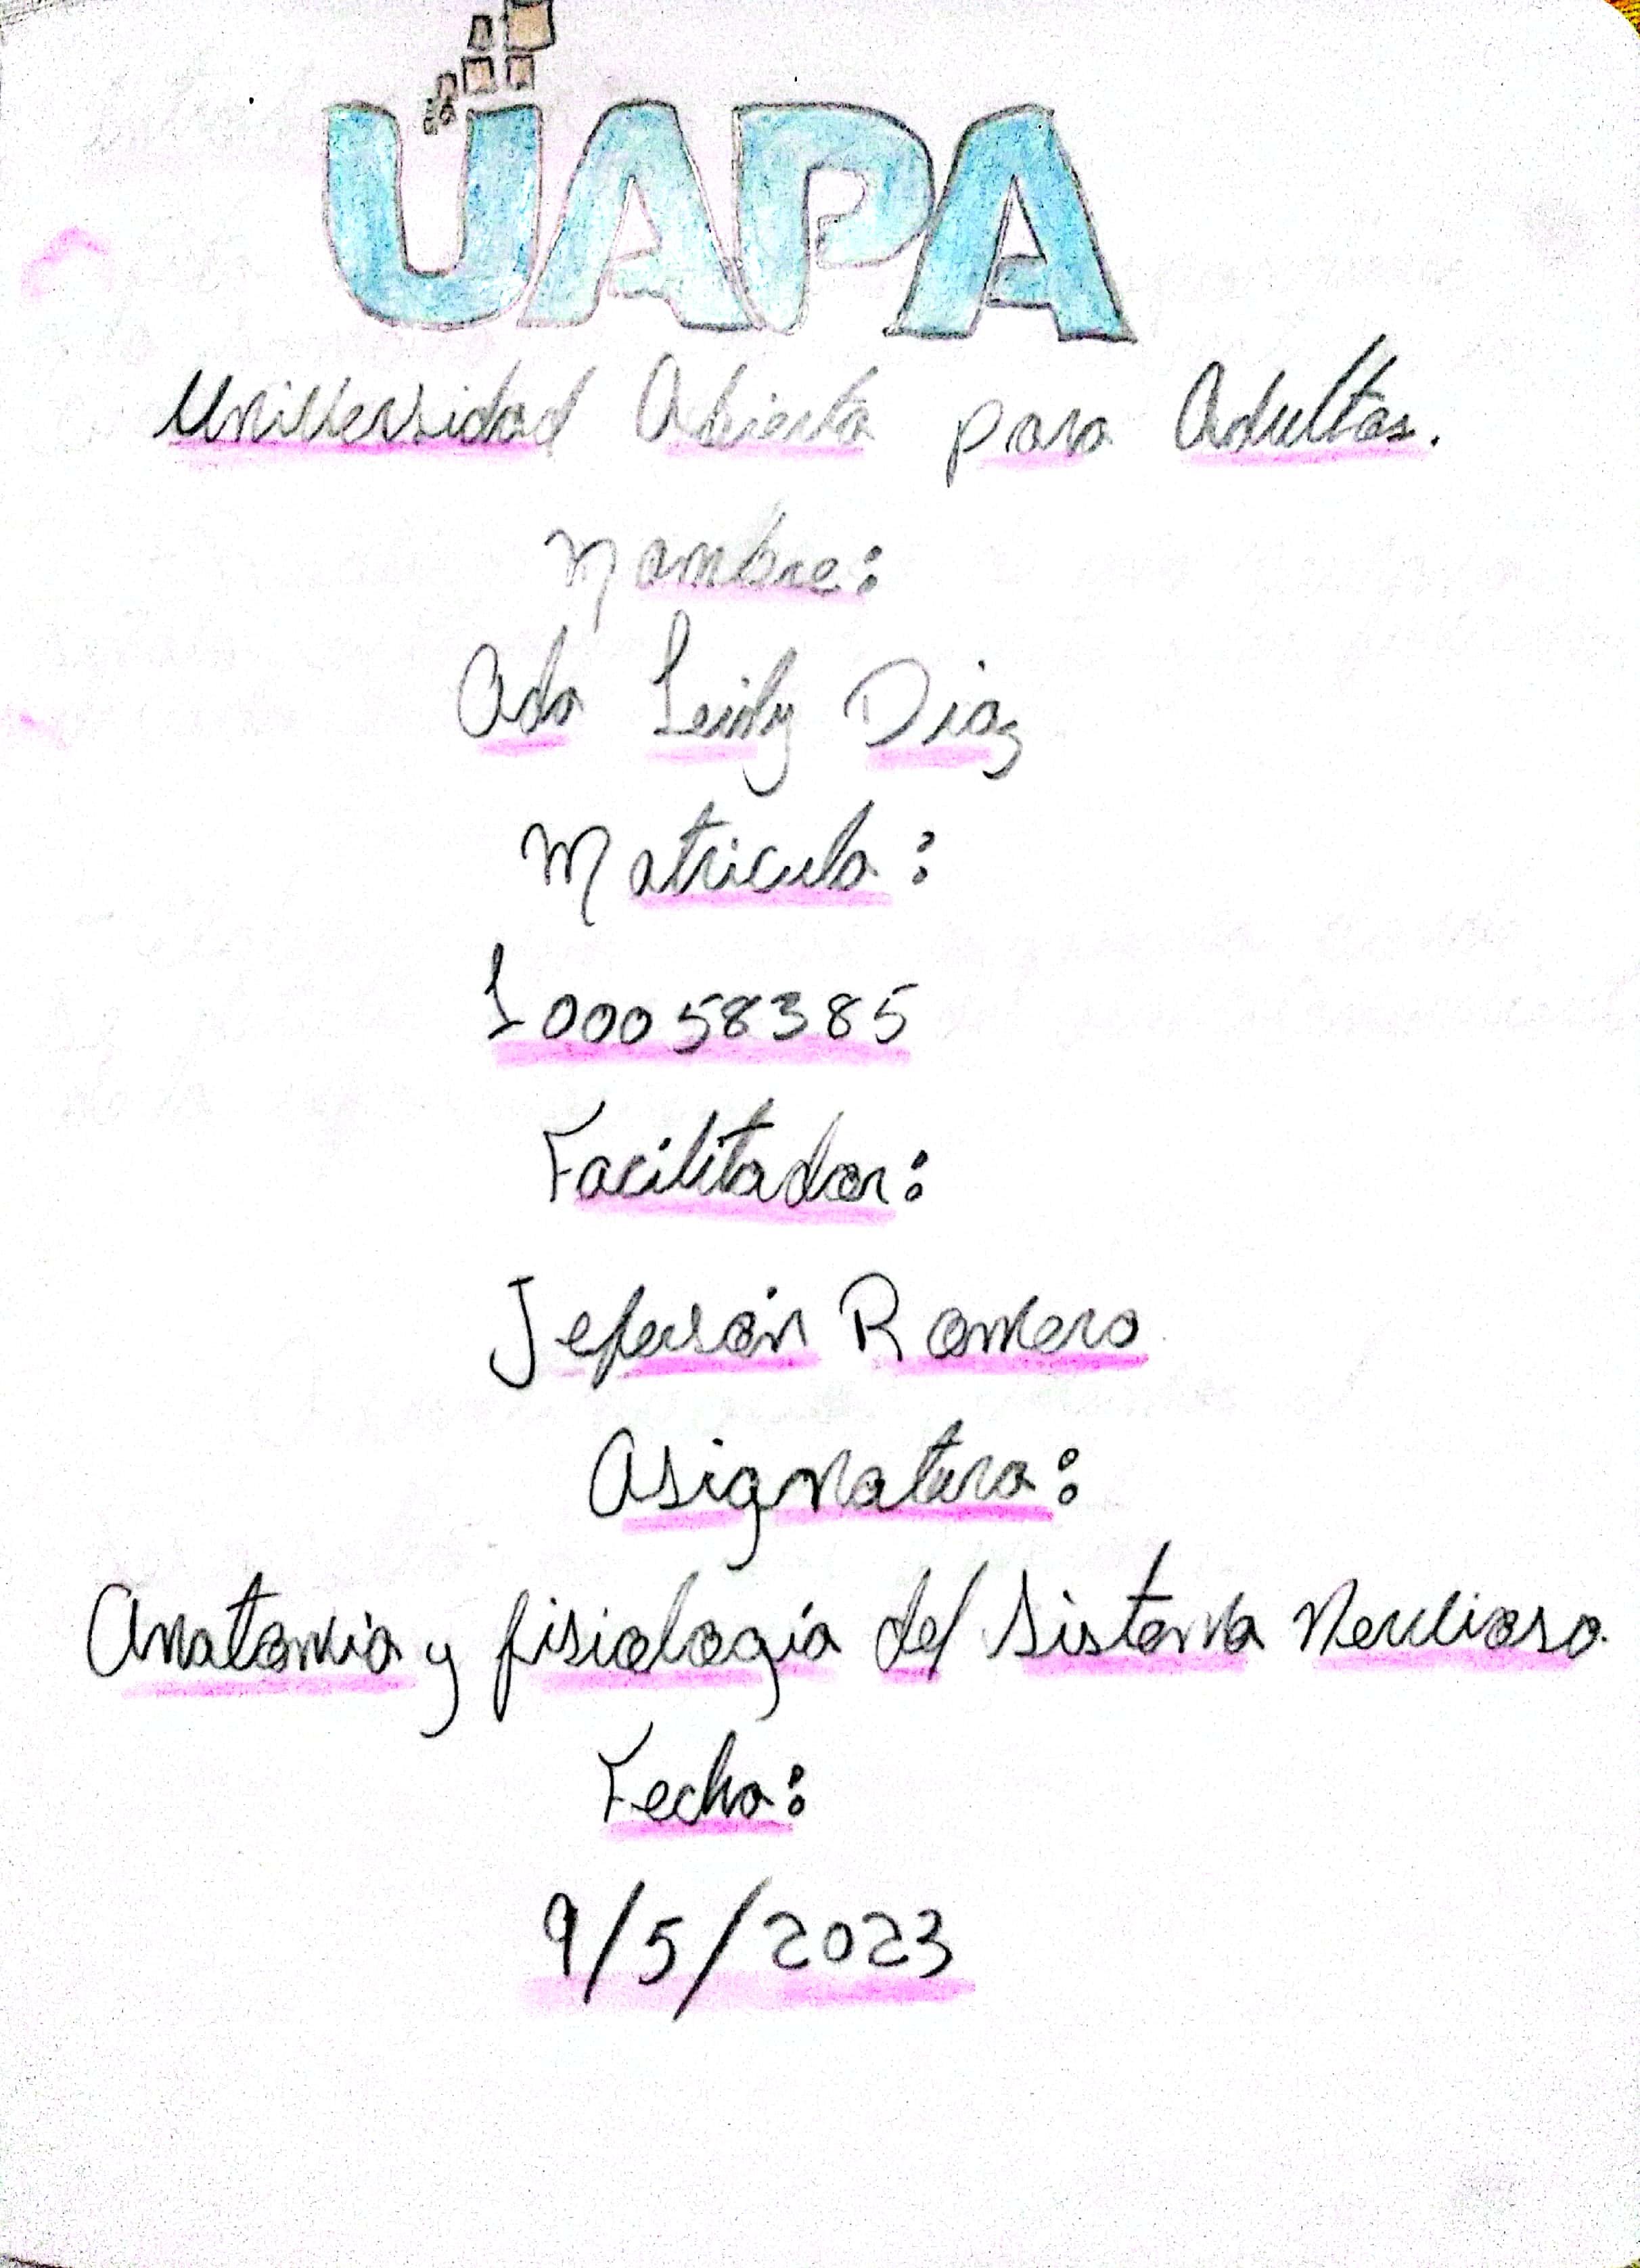 UAPA
Universidad Abierta para Adultos.
Nombre:
Ada Leidy Diaz
Matricula:
100058385
Facilitador:
Jefersón Romero
Asignatura:
Anatomia y fisiología del sistema Nervioso
Fecha:
9/5/2023